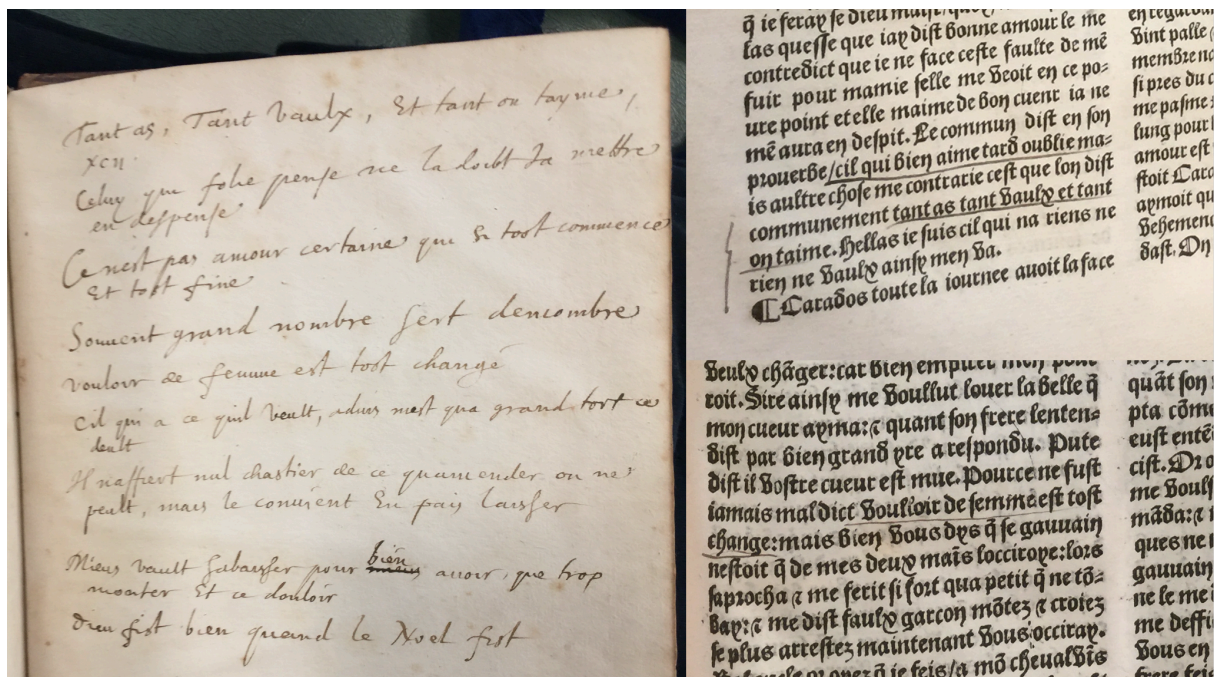 Tant as, Tant vaulx, Et tant on tayme,
xcii.
Celuy qui folie pense ne la doibt Ja mettre
en despense
Ce nest pas amour certaine qui si tost commence
Et tost fine
Souvent grand nombre sert dencombre
vouloir de femme est tost changé
Cil qui a ce quil veult, advis mest qua grand tort ce
deult
Il naffiert nul chastier de ce quamender on ne
peult, mais le convient En paix laisser
Mieux vault sabaisser pour bien avoir, que trop
monter Et ce douloir
Dieu fist bien quand le Noel fist
q̃ ie feray se dieu
las quesse que iay dist bonne amour le me
contredict que ie ne face ceste faulte de mē
fuir pour mamie selle me veoit en ce po-
ure point et elle maime de bon cueur ia ne
mē aura en despit. Le commun dist en son
prouerbe/cil qui bien aime tard oublie ma-
is aultre chose me contrarie cest que lon dist
communement tant as tant vaulx et tant
on taime. Hellas ie suis cil qui na riens ne
rien ne vaulx ainsy men va.
¶Carados toute la iournee auoit la face
en regardāt
vint palle
membre
si pres du c
me pasme
lung pour l
amour est
stoit Cara
aymoit qu
vehemenc
dast. On
veulx chāger: car bien
roit. Sire ainsy me voullut louer la belle q̃
mon cueur ayma: ⁊ quant son frere lenten-
dist par bien grand yre a respondu. Pute
dist il vostre cueur est mue. Pource ne fust
iamais mal dict vouloir de femme est tost
change: mais bien vous dys q̃ se gauuain
nestoit q̃ de mes deux maīs locciroye: lors
saprocha ⁊ me ferit si fort qua petit q̃ ne tō-
bay: ⁊ me dist faulx garcon mōtez ⁊ croiez
se plus arrestez maintenant vous occiray.
q̃ ie feis/a mō cheual vīs
quāt son
pta cōme
eust entē
cist. Or o
me voulf
māda: ⁊
ques ne
gauuain
ne le me
me deffi
Vous en
frere feis